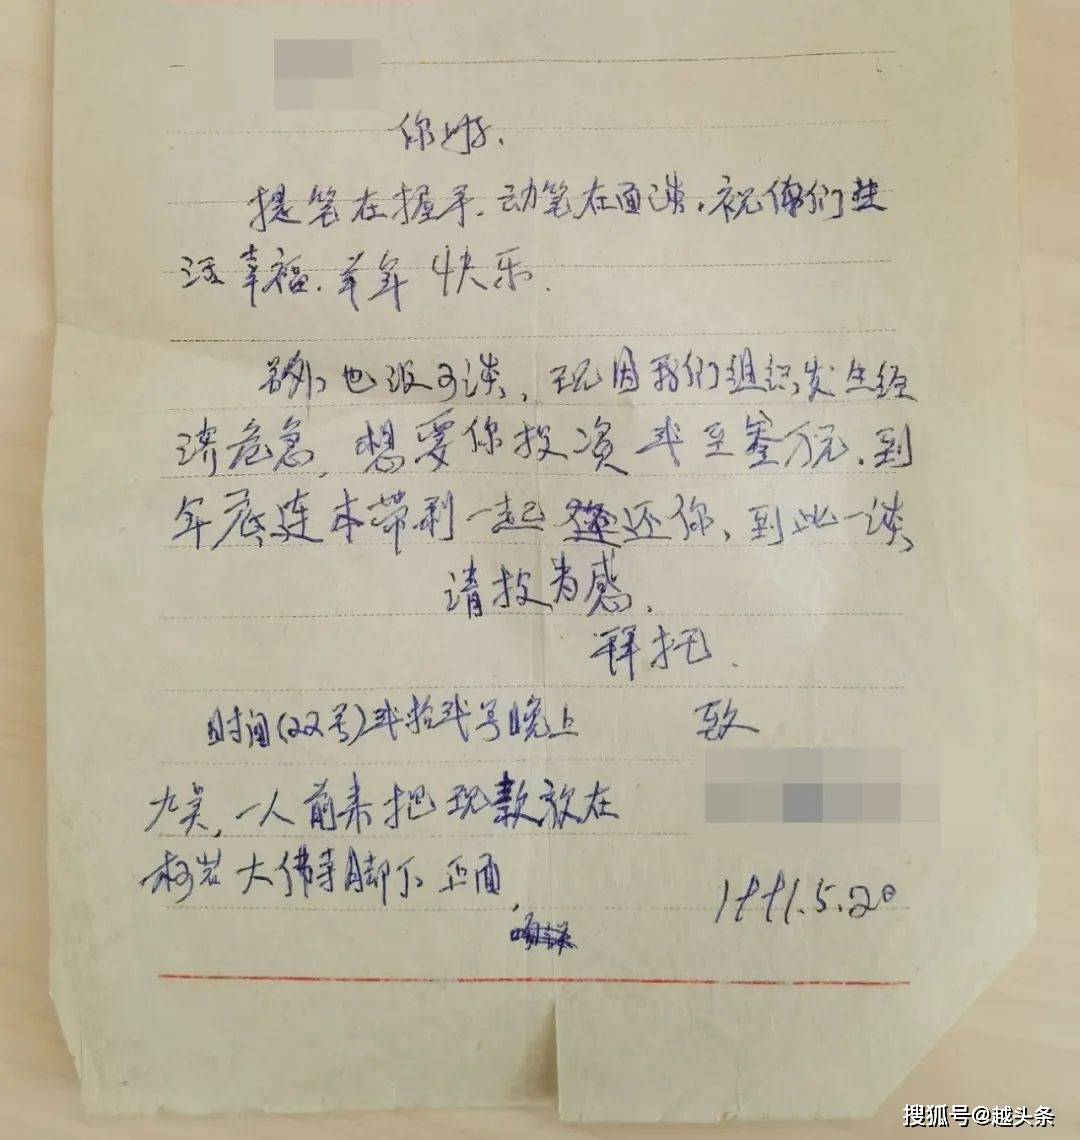 你好.
提笔在握手.动笔在面谈.祝你们生
活幸福.羊年快乐.
另外也没可谈,现因我们组织发生经
济危急,想要你投资弍至叁万元.到
年底连本带利一起还你、到此一谈
请投为感.
拜托.
时间(22号)弍拾弍号晚上
致
九点,一人前来把现款放在
柯岩大佛寺脚下正面,
1991.5.20
搜狐号@越头条